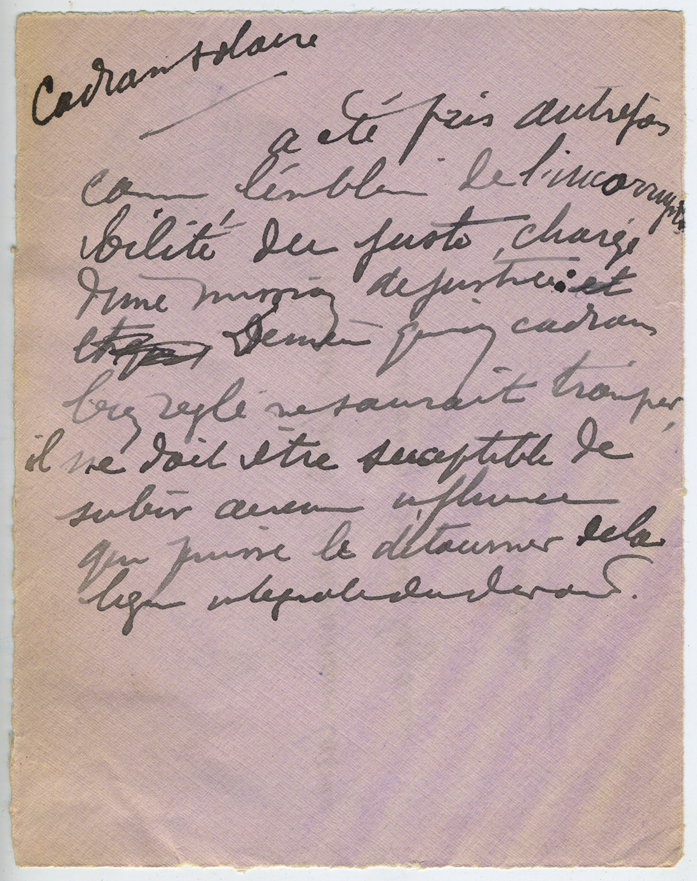 Cadran solaire
a été pris autrefois
comme l'emblème de l'incorrupti
bilité du juste, chargé
d'une mission de justice : et
De même qu'un cadran
bien réglé ne saurait tromper,
il ne doit être suceptible de
subir aucune influence
qui puisse le détourner de la
ligne intégrale du devoir.